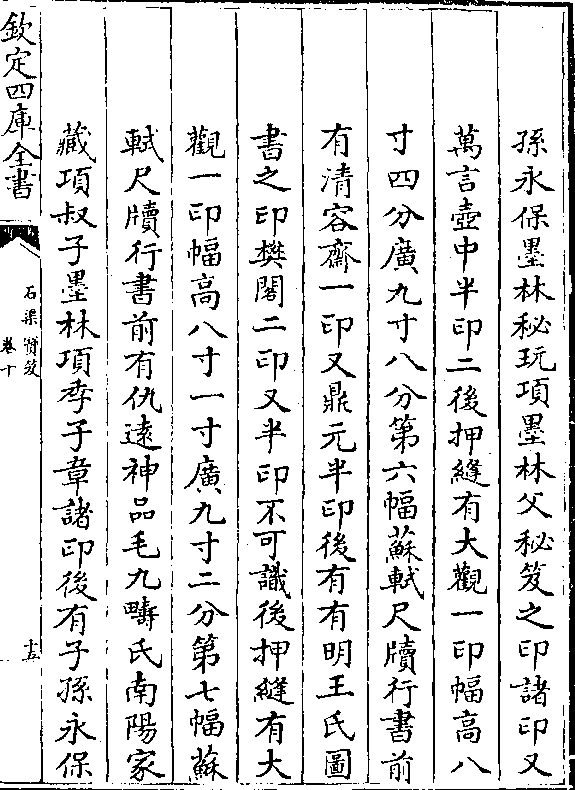 孫永保墨林秘玩項墨林父秘笈之印諸印又
萬言壺中半印二後押縫有大觀一印幅高八
寸四分廣九寸八分第六幅蘇軾尺牘行書前
有清容齋一印又鼎元半印後有有明王氏圖
書之印樊閣二印又半印不可識後押縫有大
觀一印幅高八寸一寸廣九寸二分第七幅蘇
軾尺牘行書前有仇遠神品毛九疇氏南陽家
藏項叔子墨林項季子章諸印後有子孫永保
欽定四庫全書
石渠寶笈
卷十
十五